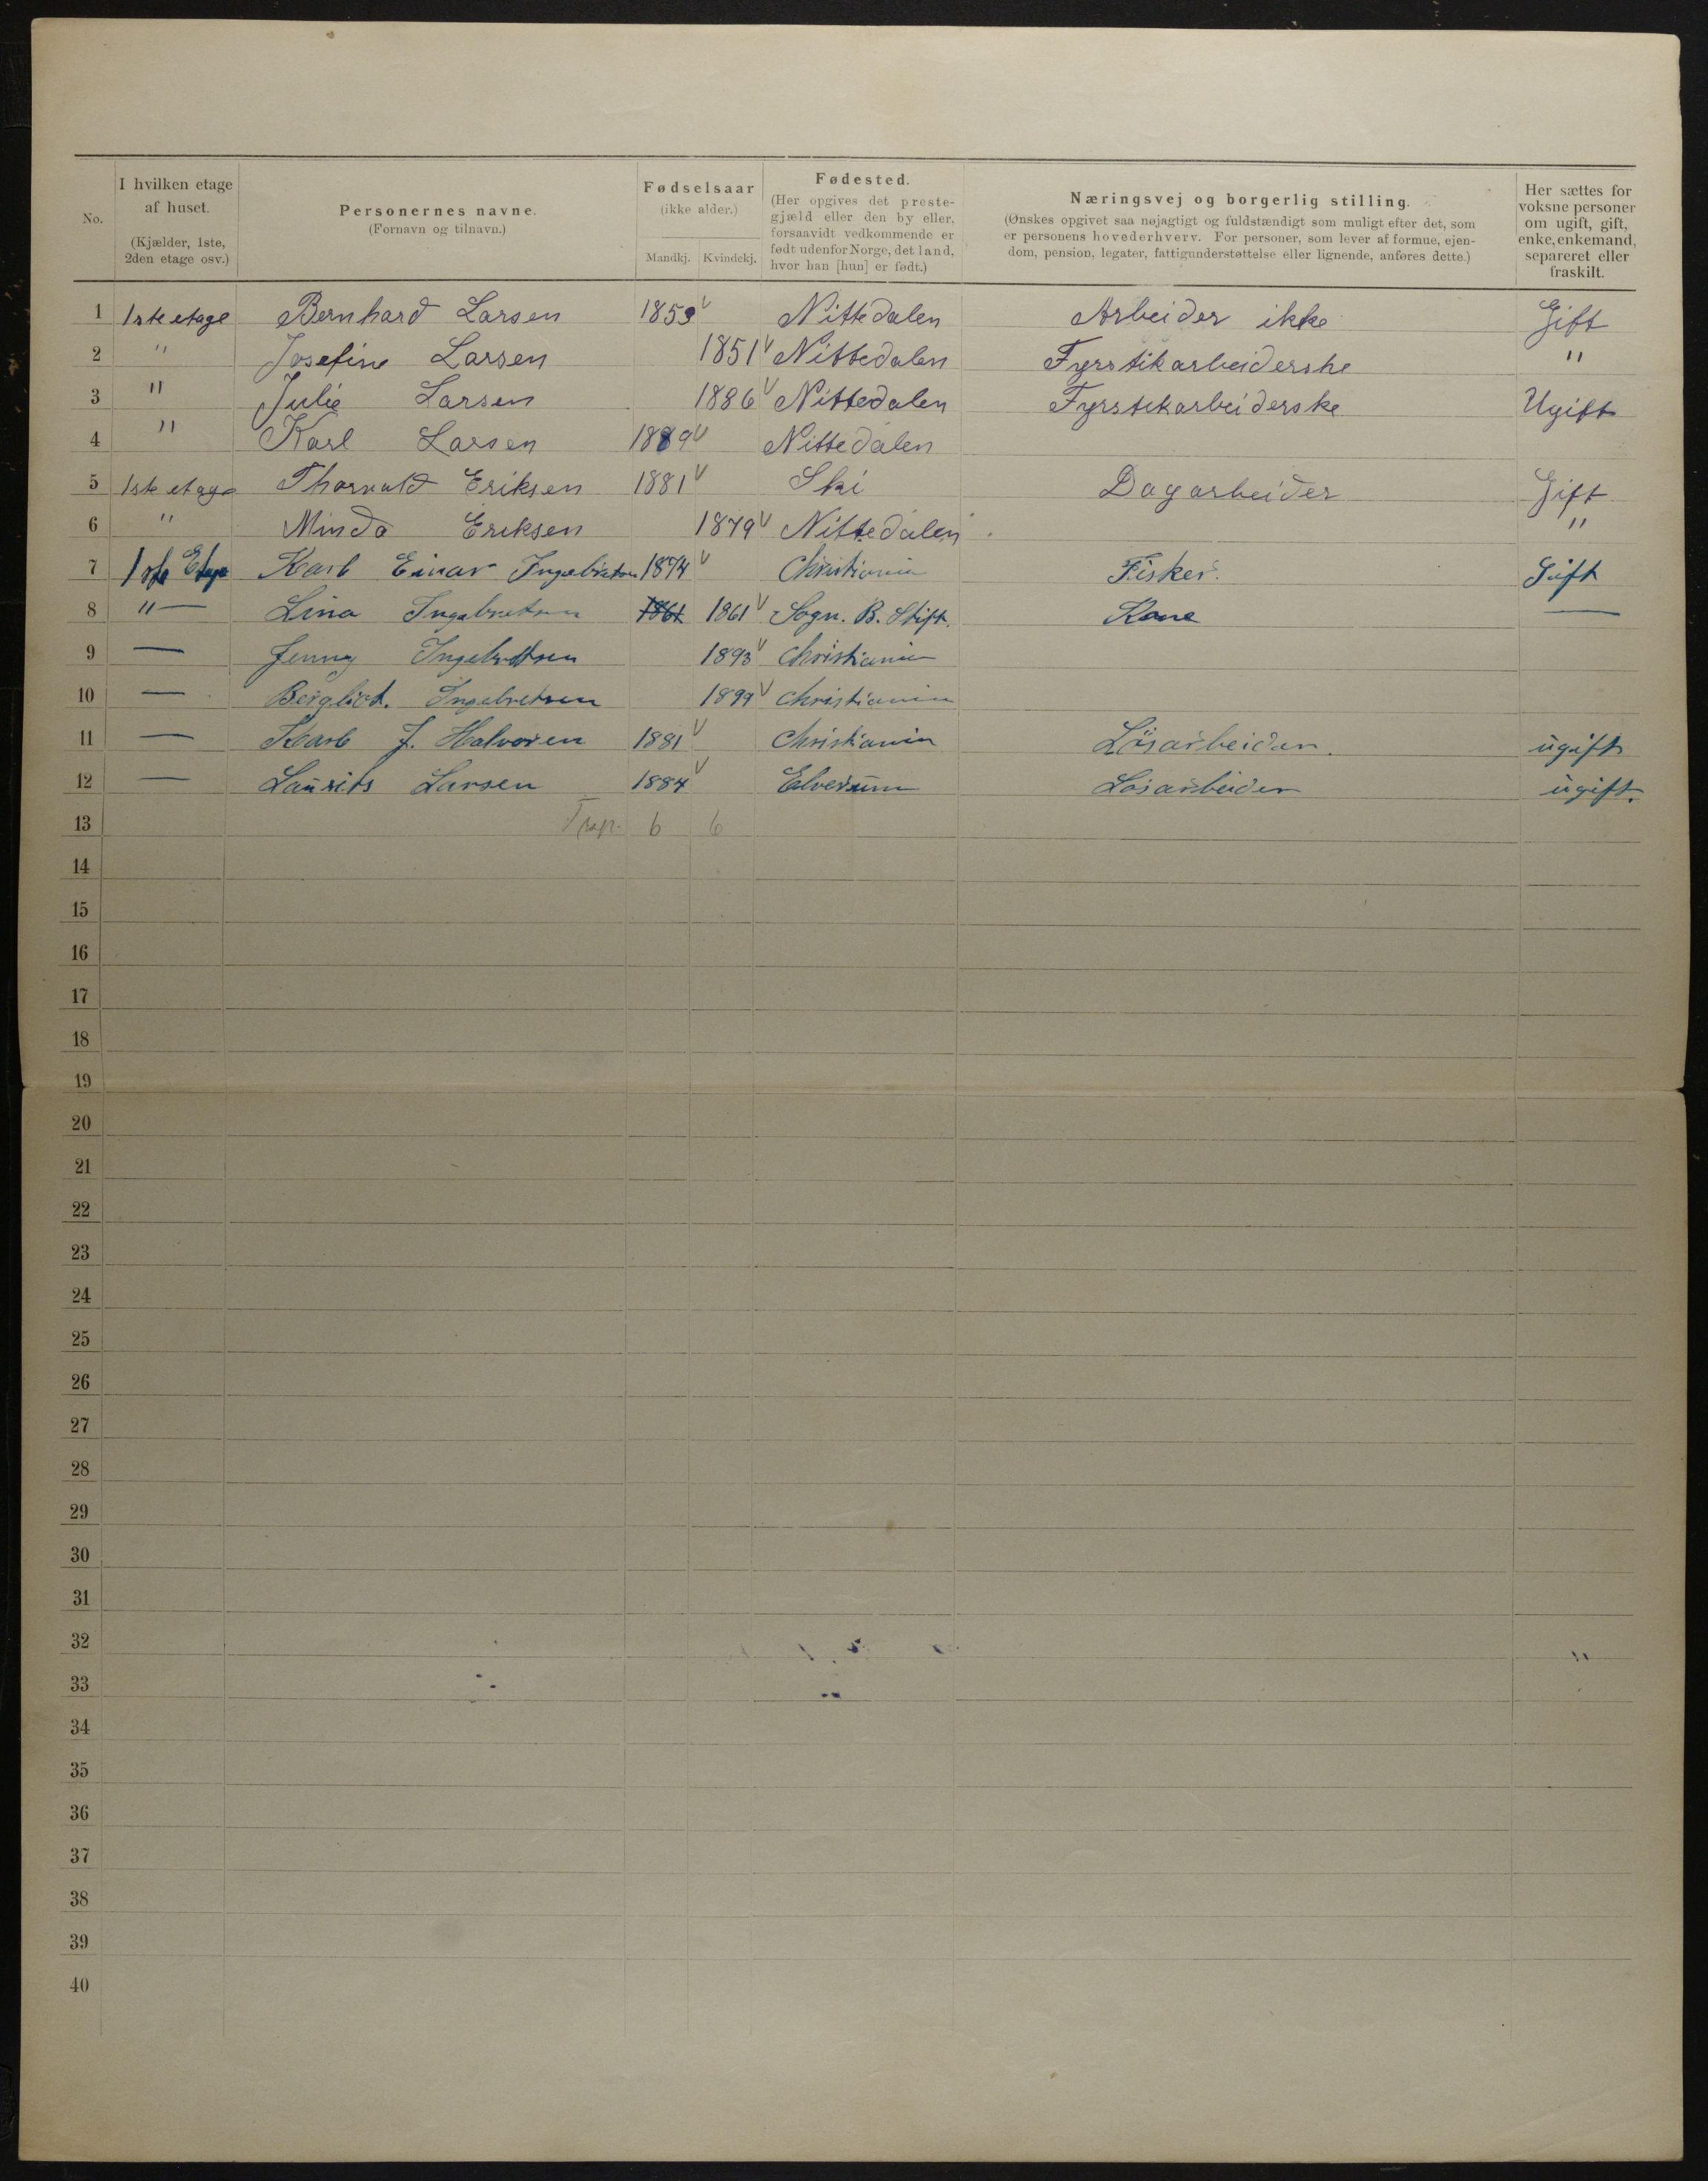 No.
I hvilken etage af huset. (Kjælder, 1ste, 2den etage osv.)
Personernes navne. (Fornavn og tilnavn.)
Fødselsaar (ikke alder.) Mandkj. Kvindekj.
Fødested. (Her opgives det prestegjæld eller den by eller, forsaavidt vedkommende er født udenfor Norge, det land, hvor han [hun] er født.)
Næringsvej og borgerlig stilling. (Ønskes opgivet saa nøjagtigt og fuldstændigt som muligt efter det, som er personens hovederhverv. For personer, som lever af formue, ejendom, pension, legater, fattigunderstøttelse eller lignende, anføres dette.)
Her sættes for voksne personer om ugift, gift, enke, enkemand, separeret eller fraskilt.
1 1ste etage Bernhard Larsen 1853 Nittedalen Arbeider ikke Gift
2 " Josefine Larsen 1851 Nittedalen Fyrstikarbeiderske "
3 " Julie Larsen 1886 Nittedalen Fyrstikarbeiderske Ugift
4 " Karl Larsen 1889 Nittedalen
5 1ste etage Thorvald Eriksen 1881 Ski Dagarbeider Gift
6 " Minda Eriksen 1879 Nittedalen "
7 1ste Etage Karl Einar Ingebretsen 1874 Christiania Fisker. Gift
8 " — Lina Ingebretsen 1861 1861 Sogn. B. Stift. Kone —
9 — Jenny Ingebretsen 1893 Christiania
10 — Bergliot. Ingebretsen 1899 Christiania
11 — Karl J. Halvorsen 1881 Christiania Lösarbeider. ugift
12 — Laurits Larsen 1884 Elverum Lösarbeider ugift.
13 6 6
14
15
16
17
18
19
20
21
22
23
24
25
26
27
28
29
30
31
32
33
34
35
36
37
38
39
40